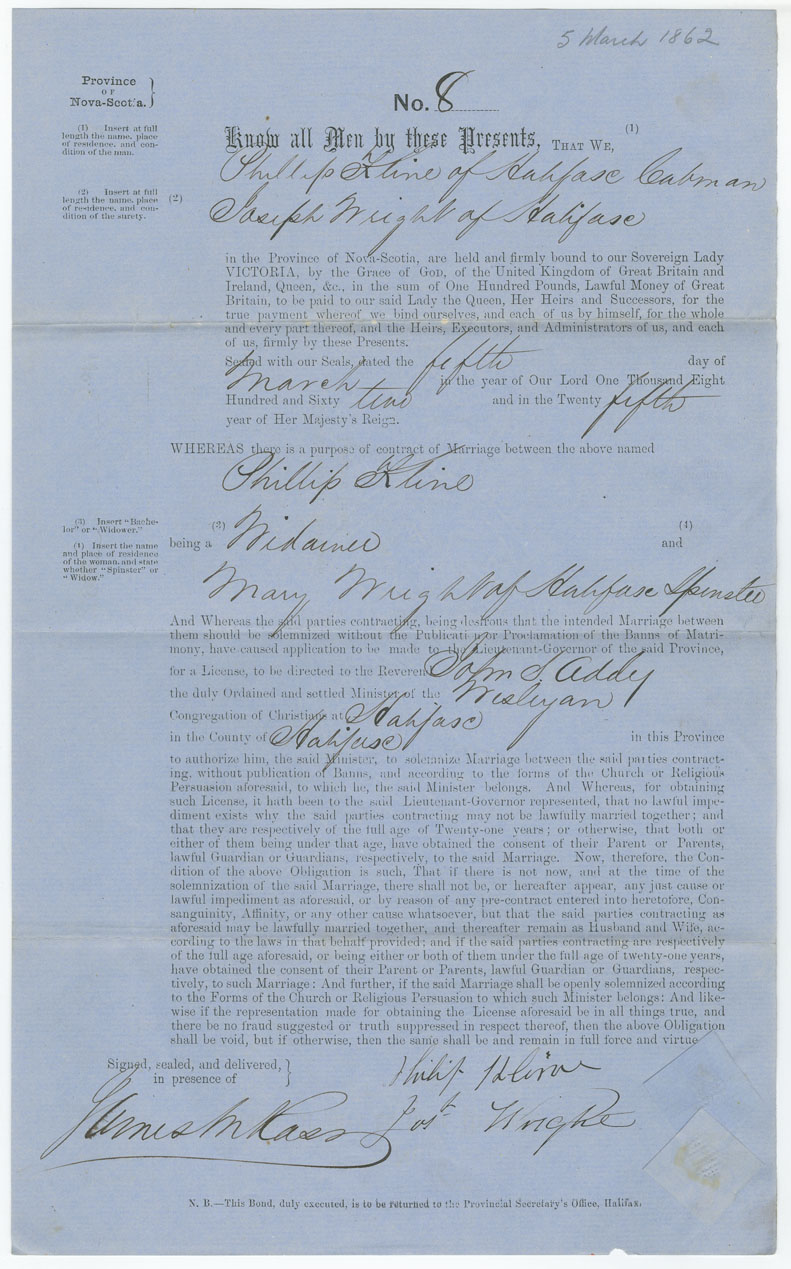 5 March 1862
Province
OF
Nova-Scotia.
No. 8
(1) Insert at full
length the name, place
of residence, and con-
dition of the man.
Know all Men by these Presents, THAT WE, (1)
Phillip Kline of Halifax Cabman
(2) Insert at full
length the name, place
of residence, and con-
dition of the surety.
(2) Joseph Wright of Halifax
in the Province of Nova-Scotia, are held and firmly bound to our Sovereign Lady
VICTORIA, by the Grace of God, of the United Kingdom of Great Britain and
Ireland, Queen, &c., in the sum of One Hundred Pounds, Lawful Money of Great
Britain, to be paid to our said Lady the Queen, Her Heirs and Successors, for the
true payment whereof we bind ourselves, and each of us by himself, for the whole
and every part thereof, and the Heirs, Executors, and Administrators of us, and each
of us, firmly by these Presents.
Sealed with our Seals, dated the fifth day of
March in the year of Our Lord One Thousand Eight
Hundred and Sixty two and in the Twenty fifth
year of Her Majesty's Reign.
WHEREAS there is a purpose of contract of Marriage between the above named
Phillip Kline
(3) Insert "Bache-
lor" or "Widower."
(4) Insert the name
and place of residence
of the woman, and state
whether "Spinster" or
"Widow."
being a (3) Widower and (4)
Mary Wright of Halifax Spinster
And Whereas the said parties contracting, being desirous that the intended Marriage between
them should be solemnized without the Publication or Proclamation of the Banns of Matri-
mony, have caused application to be made to the Lieutenant-Governor of the said Province,
for a License, to be directed to the Reverend John S. Addy
the duly Ordained and settled Minister of the Wesleyan
Congregation of Christians at Halifax
in the County of Halifax in this Province
to authorize him, the said Minister, to solemnize Marriage between the said parties contract-
ing, without publication of Banns, and according to the forms of the Church or Religious
Persuasion aforesaid, to which he, the said Minister belongs. And Whereas, for obtaining
such License, it hath been to the said Lieutenant-Governor represented, that no lawful impe-
diment exists why the said parties contracting may not be lawfully married together; and
that they are respectively of the full age of Twenty-one years; or otherwise, that both or
either of them being under that age, have obtained the consent of their Parent or Parents,
lawful Guardian or Guardians, respectively, to the said Marriage. Now, therefore, the Con-
dition of the above Obligation is such, That if there is not now, and at the time of the
solemnization of the said Marriage, there shall not be, or hereafter appear, any just cause or
lawful impediment as aforesaid, or by reason of any pre-contract entered into heretofore, Con-
sanguinity, Affinity, or any other cause whatsoever, but that the said parties contracting as
aforesaid may be lawfully married together, and thereafter remain as Husband and Wife, ac-
cording to the laws in that behalf provided; and if the said parties contracting are respectively
of the full age aforesaid, or being either or both of them under the full age of twenty-one years,
have obtained the consent of their Parent or Parents, lawful Guardian or Guardians, respec-
tively, to such Marriage: And further, if the said Marriage shall be openly solemnized according
to the Forms of the Church or Religious Persuasion to which such Minister belongs: And like-
wise if the representation made for obtaining the License aforesaid be in all things true, and
there be no fraud suggested or truth suppressed in respect thereof, then the above Obligation
shall be void, but if otherwise, then the same shall be and remain in full force and virtue
Signed, sealed, and delivered,
in presence of
Philip Kline
James M Kass
Josh Wright
N. B.—This Bond, duly executed, is to be returned to the Provincial Secretary's Office, Halifax.